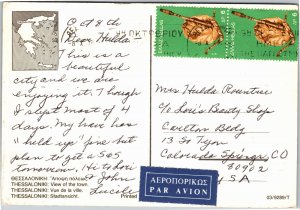 Oct 8th
Dear Hulda
This is a
beautiful
city and we are
enjoying it. Though
I slept most of 4
days. My knee has
"held up" fine but
plan to get a 505
tomorrow. Hi to Lori
& John
Lucile
Mrs Hulda Rountree
c/o Lori's Beauty Shop
Carlton Bldg
13 So Tejon
Colorado Springs, CO
80902
USA
ΑΕΡΟΠΟΡΙΚΩΣ
PAR AVION
ΘΕΣΣΑΛΟΝΙΚΗ: Άποψις πόλεως.
THESSALONIKI: View of the town.
THESSALONIKI: Vue de la ville.
THESSALONIKI: Stadtansicht.
Printed
03/9289/T